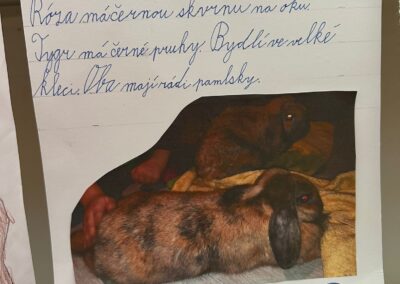 Róza má černou skvrnu na oku.
Tygr má černé pruhy. Bydlí ve velké
kleci. Oba mají rádi pamlsky.